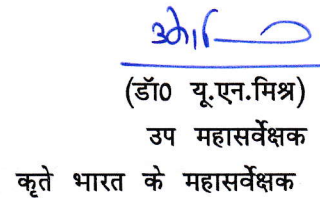 (डॉ0 यू.एन.मिश्र)
उप महासर्वेक्षक
कृते भारत के महासर्वेक्षक